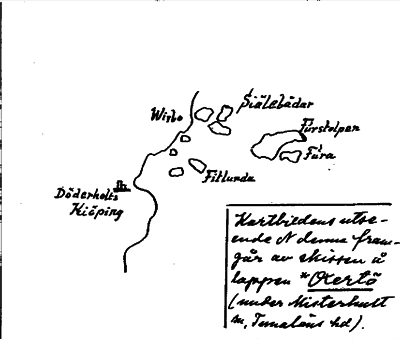 Själebådar
Wisbo
Furstolpen
Fura
Fitlunda
Döderholts
Kiöping
Kartbildens utse-
ende N denna fram-
går av skissen å
lappen "Okertö
(under Misterhult
sn, Tunaläns hd).